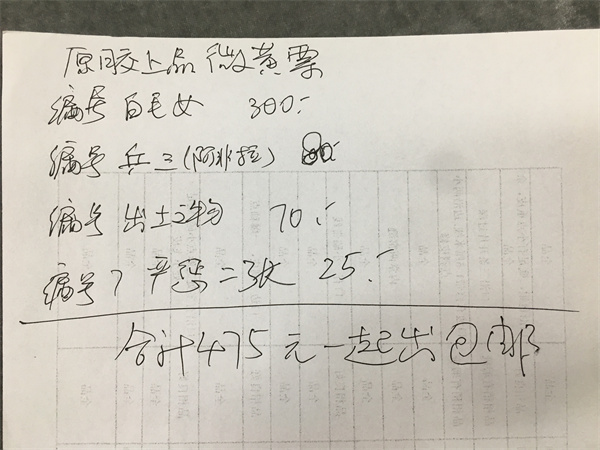 原胶上品微黄票
编号白毛女 300.-
编号兵三(阿非拉) 80.-
编号出土文物 70.-
编号 严惩二张 25.-
合计475元一起出包邮